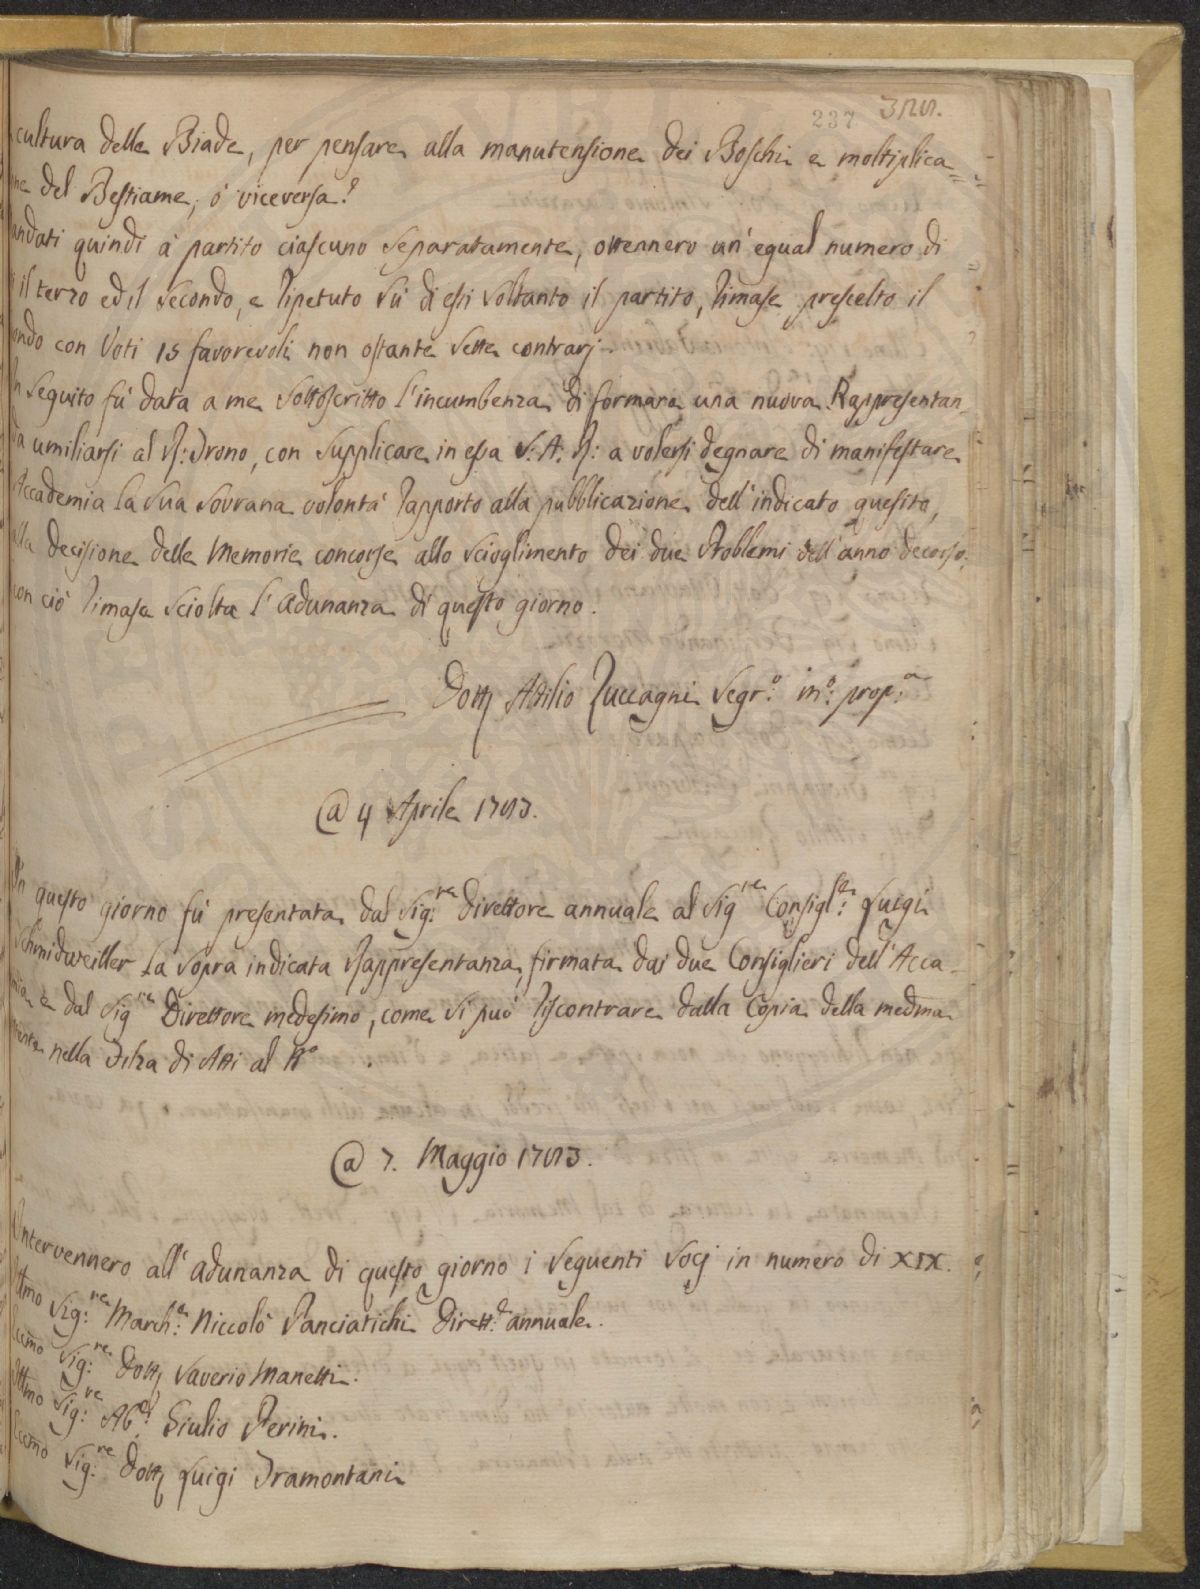 237 
cultura delle Biade, per pensare alla manutensione dei Boschi e moltiplica=
ne del Bestiame, ò viceversa?
andati quindi à partito ciascuno separatamente, ottennero un' egual numero di
il terzo ed il secondo, e ripetuto sù di essi soltanto il partito, rimase prescelto il
ondo con Voti 15 favorevoli non ostante sette contrarj.
In seguito fù data a me sottoscritto l'incumbenza di formare una nuova Rappresentan=
da umiliarsi al R: Trono, con supplicare in essa S: A: R: a volersi degnare di manifestare
Accademia la sua sovrana volontà rapporto alla pubblicazione dell'indicato quesito,
alla decisione delle Memorie concorse allo scioglimento dei due Problemi dell'anno decorso.
con ciò rimase sciolta l'adunanza di questo giorno.
Dott Attilio Zuccagni Segr.º mº: prop.ª
@ 4 Aprile 1783.
In questo giorno fù presentata dal Sig:re Direttore annuale al Sigre Consigl:e Luigi
Schmidweiller la sopra indicata Rappresentanza, firmata dai due Consiglieri dell'Acca=
mia e dal Sigre Direttore medesimo, come si può riscontrare dalla Copia della medma
nella Filza di Atti al Nº .
@ 7. Maggio 1783.
Intervennero all'adunanza di questo giorno i seguenti Socj in numero di XIX.
Illmo Sig:re March:e Niccolò Panciatichi Dirett:e annuale.
Eccmo Sig:re Dott Saverio Manetti.
Illmo Sig:re Ab:e Giulio Perini.
Eccmo Sig:re Dott Luigi Tramontani